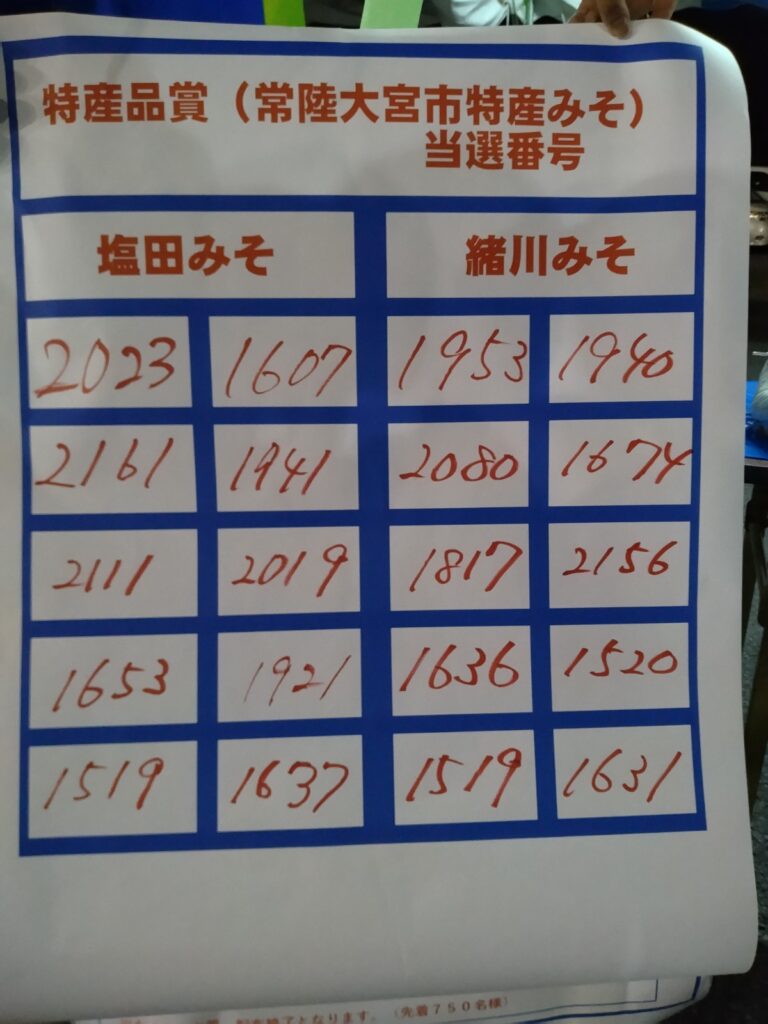 特産品賞（常陸大宮市特産みそ）
当選番号
塩田みそ 緒川みそ
2023 1607 1953 1940
2161 1941 2080 1674
2111 2019 1817 2156
1653 1921 1636 1520
1519 1637 1519 1631
配布終了となります。（先着７５０名様）